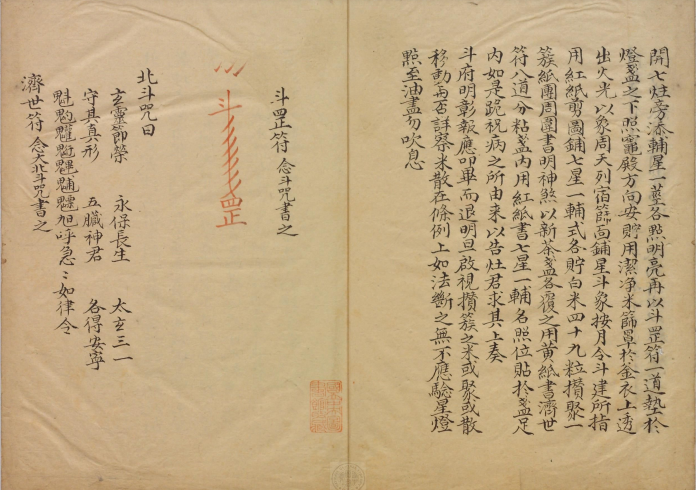 開七炷旁添輔星一莖各點明亮再以斗罡符一道墊於
燈盞之下照竈殿方向安貯用潔净米篩罩於釜衣上透
出火光以象周天列宿篩面鋪星斗象按月令斗建所指
用紅紙剪圓鋪七星一輔式各貯白米四十九粒攢聚一
簇紙團周圍書明神煞以新茶盞各覆之用黄紙書濟世
符八道分粘盞内用紅紙書七星一輔名照位貼於盞足
内如是跪祝病之所由来以告灶君求其上奏
斗府明彰報應叩畢而退明旦啟視攢簇之米或聚或散
移動與否詳察米散在條例上如法斷之無不應驗星燈
㸃至油盡勿吹息
斗罡符 念斗咒書之
斗罡
北斗咒曰
玄靈節榮 永保長生 太玄三一
守其真形 五臟神君 各得安寧
魁䰢䰡魓䰣䰤䰥旭呼急〻如律令
濟世符 念大北斗咒書之